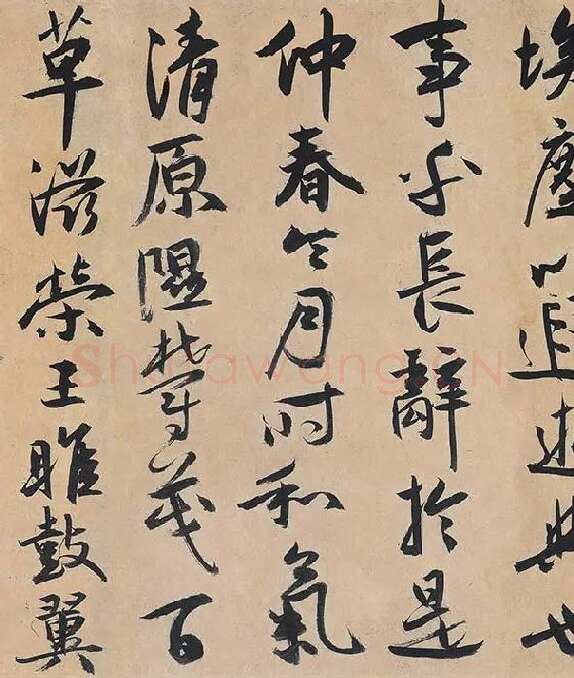 埃塵以追逝與世
事乎長辭於是
仲春令月时和氣
清原隰鬱茂百
草滋榮王雎鼓翼
Shufawang.CN